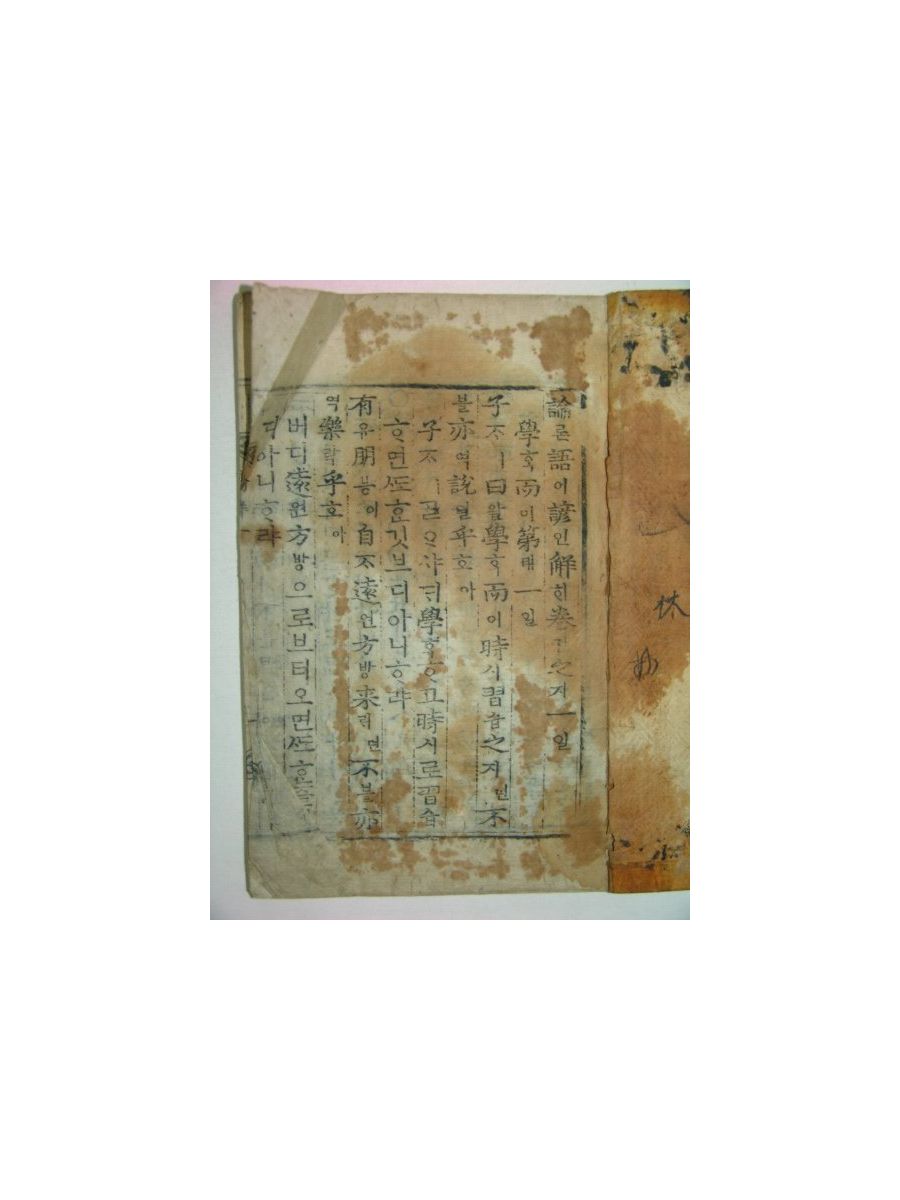 論론語어諺언解ᄒᆡ卷권之지一일
學ᄒᆞᆨ而이第뎨一일
子ᄌᆞㅣ曰왈學ᄒᆞᆨ而이時시習습之지면不
블亦역說열乎호아
子ᄌᆞㅣᄀᆞᆯᄋᆞ샤ᄃᆡ學ᄒᆞᆨᄒᆞ고時시로習습
ᄒᆞ면ᄯᅩᄒᆞᆫ깃브디아니ᄒᆞ랴
有유朋븡이自ᄌᆞ遠원方방來ᄅᆡ면不블亦
역樂락乎호아
버디遠원方방으로브터오면ᄯᅩᄒᆞᆫ즐
디아니ᄒᆞ랴